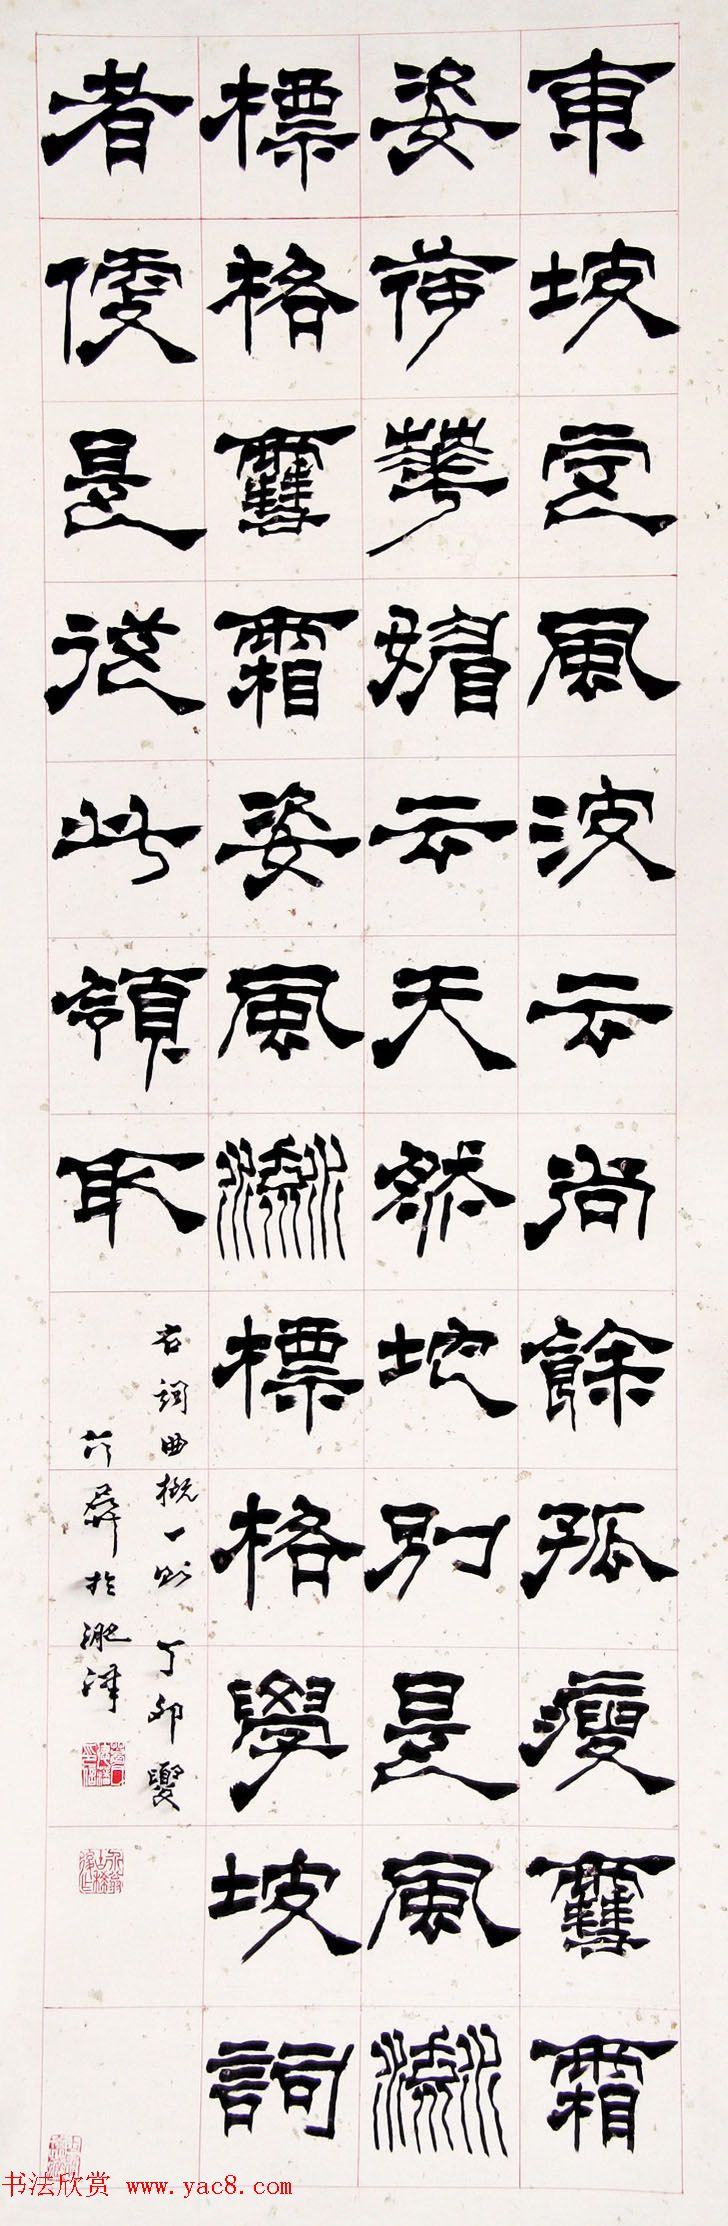 東坡定風波云尚餘孤瘦雪霜
姿荷華媚云天然地別是風流
標格雪霜姿風流標格學坡詞
者便是從此領取
右詞曲概一則 丁卯夏
介屏於淝津
书法欣赏 www.yac8.com